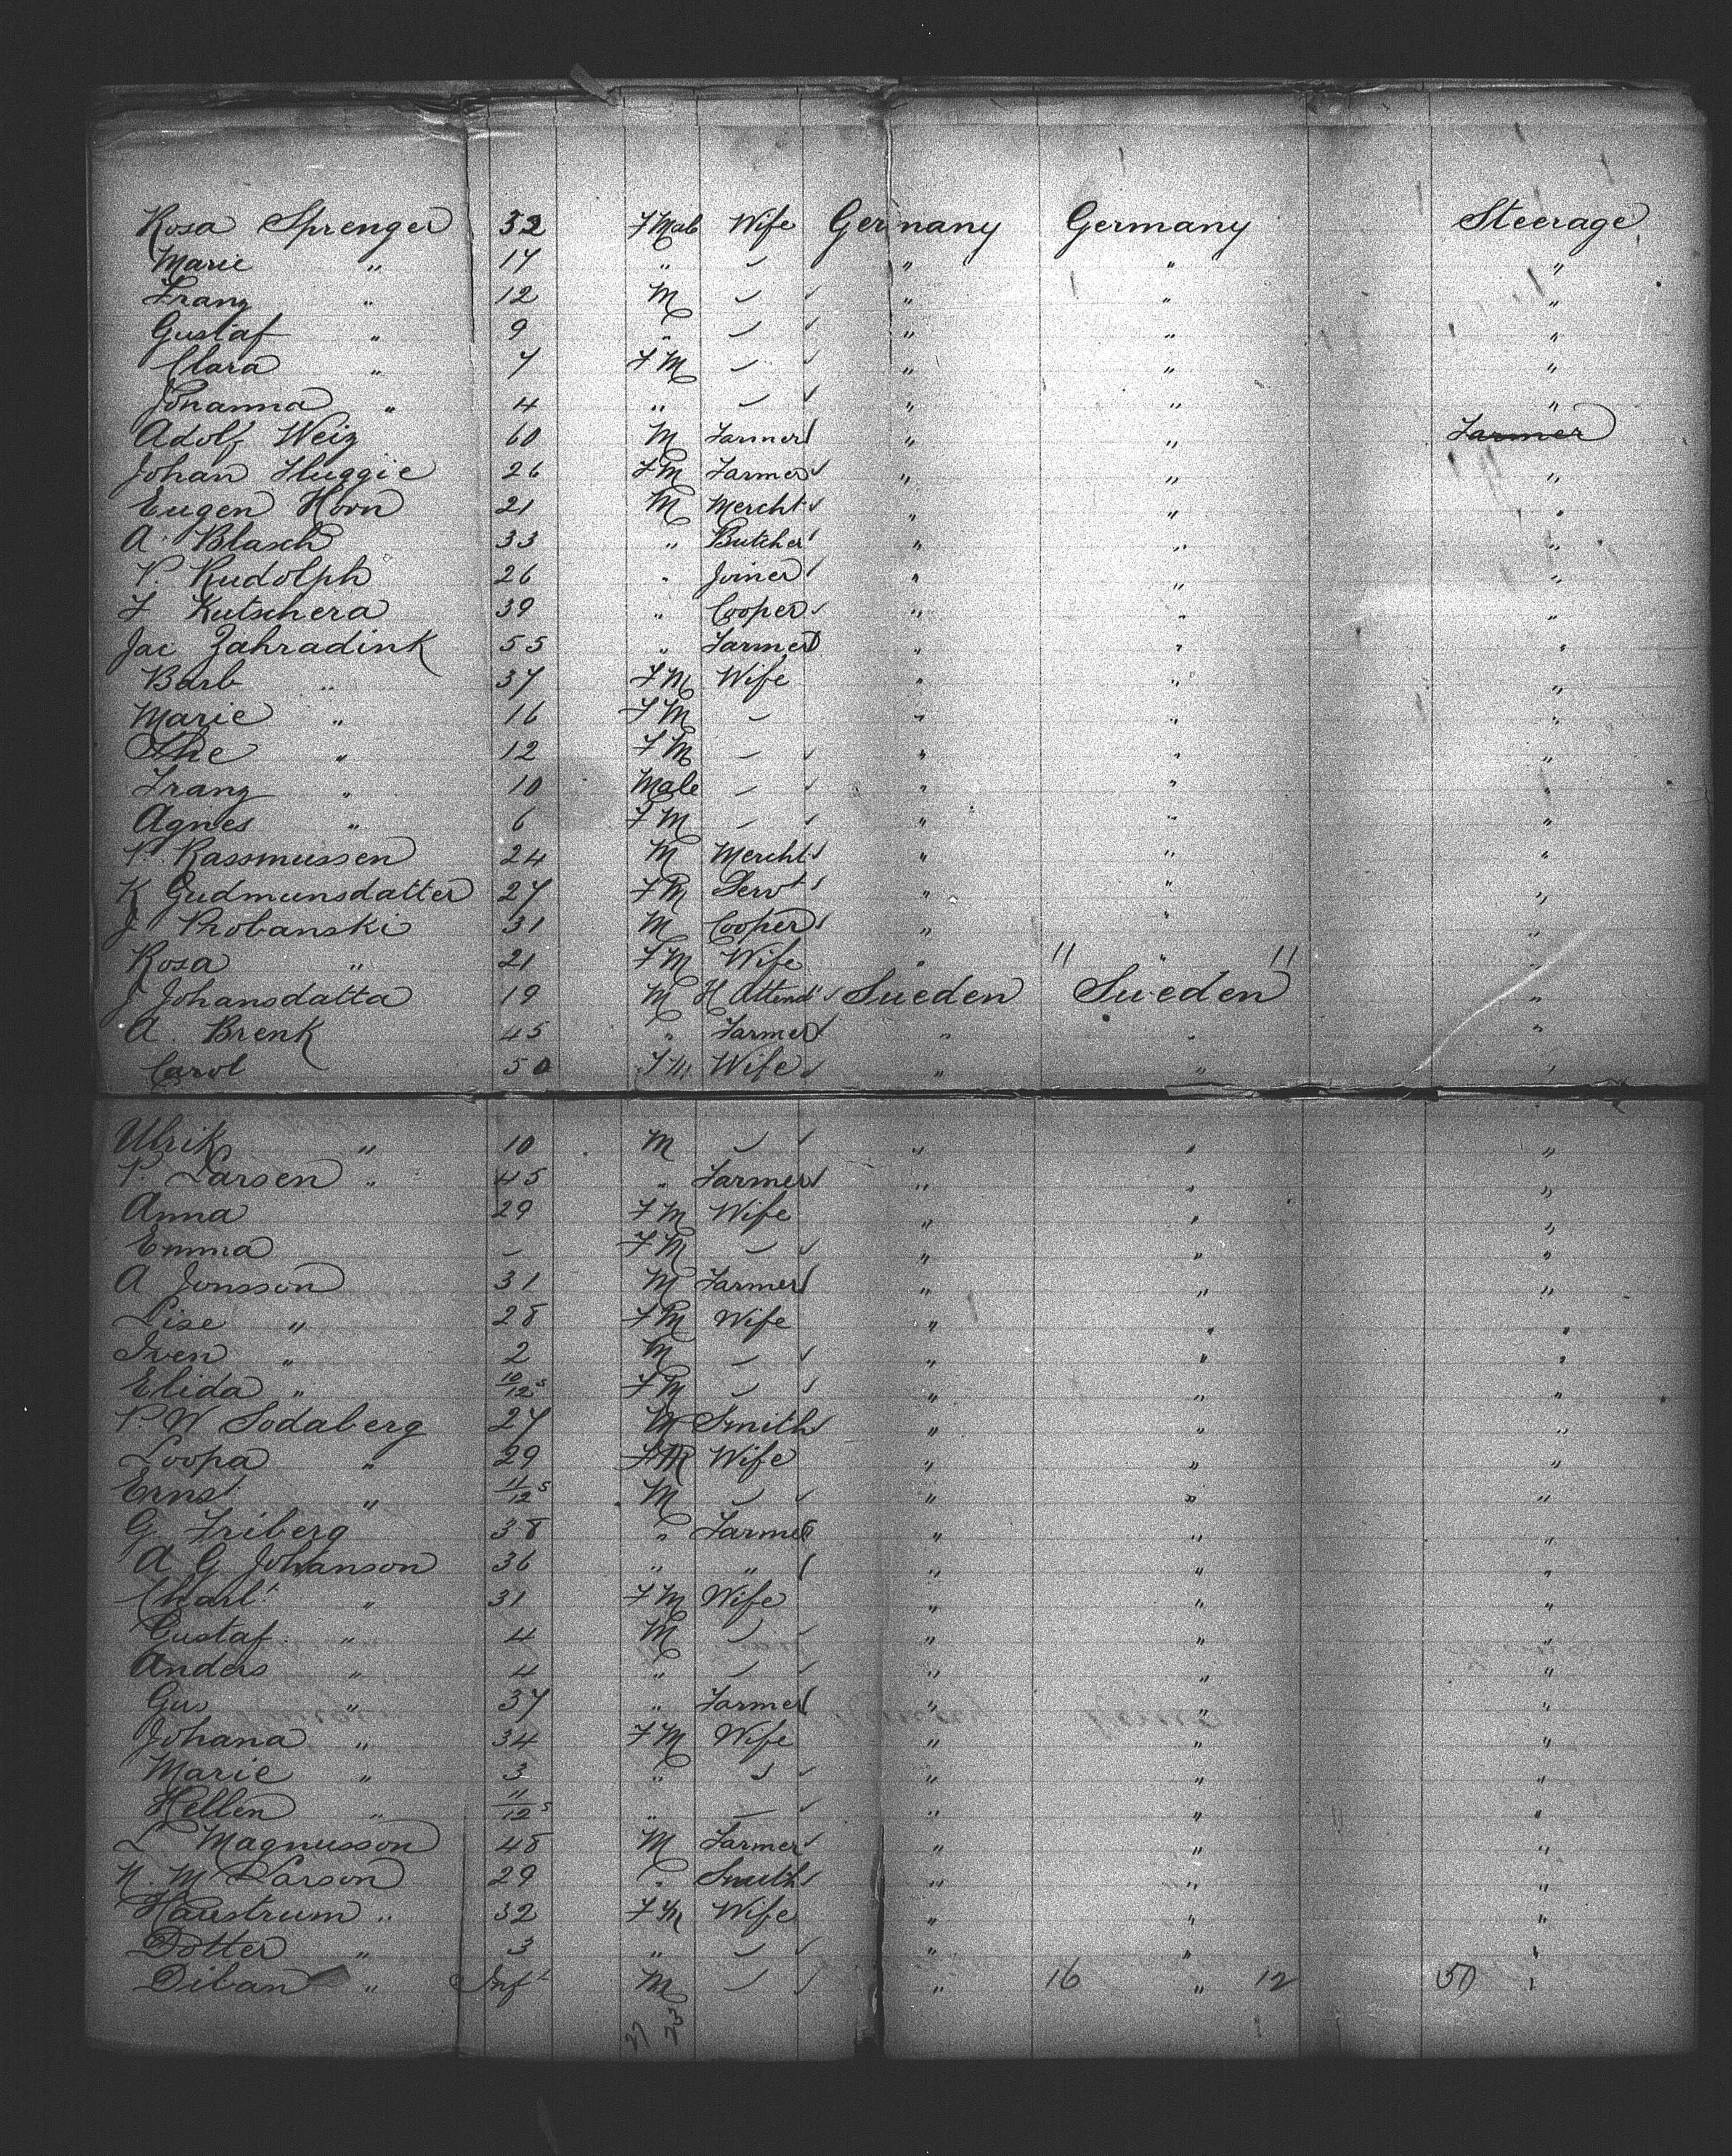 Rosa Sprenger 32 FMale Wife Germany Germany Steerage
Marie " 14 " " " "
Franz " 12 M ✓ " " "
Gustaf " 9 " ✓ " " "
Clara " 7 FM ✓ " " "
Johanna " 4 " ✓ " " "
Adolf Weiz 60 M Farmer " " Farmer
Johan Fluggie 26 FM Farmer ✓ " " "
Eugen Horn 21 M Mercht ✓ " " "
A. Blasch 33 " Butcher ✓ " " "
P. Rudolph 26 " Joiner ✓ " " "
F Kutschera 39 " Cooper ✓ " " "
Jac Zahradink 55 " Farmer " " "
Barb " 37 FM Wife " " "
Marie " 16 FM " " "
" 12 FM ✓ " " "
Franz " 10 Male ✓ " " "
Agnes " 6 FM ✓ " " "
P. Rassmussen 24 M Mercht ✓ " " "
K Gudmunsdatter 27 FM Servt ✓ " " "
J Probanski 31 M Cooper ✓ " " "
Rosa " 21 FM Wife " " " " "
J Johansdatta 19 M H Attend ✓ Sueden Sweden "
A. Brenk 45 " Farmer ✓ " " "
Carol 50 FM Wife ✓ " " "
Ulrik " 10 M ✓ " " "
P. Larsen " 45 " Farmer ✓ " " "
Anna 29 FM Wife " " "
Emma - FM ✓ " " "
A Jonsson 31 M Farmer ✓ " " "
Lise " 28 FM Wife " " "
Sven " 2 M ✓ " " "
Elida " 10/12s FM ✓ " " "
P. W Sodaberg 27 M Smith ✓ " " "
Loopa " 29 FM Wife " " "
Ernst " 11/12s M ✓ " " "
G. Friberg 38 " Farmer " " "
A G Johanson 36 " " ✓ " " "
Charlt. " 31 FM Wife " " "
Gustaf " 4 M ✓ " " "
Anders " 4 " ✓ " " "
Gus " 37 " Farmer " " "
Johana " 34 FM Wife " " "
Marie " 3 " ✓ " " "
Hellen " 11/12s " ✓ " " "
L Magnusson 48 M Farmer ✓ " " "
N. M Larson 29 " Smith ✓ " " "
Haustrum " 32 FM Wife " " "
Dotter " 3 " ✓ " " "
Diban " Inft M ✓ " 16 " 12 50 "
27 23